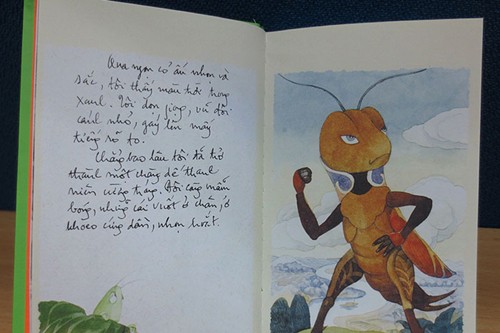 Qua ngọn cỏ ấu nhọn và
sắc, tôi thấy màu trời trong
xanh. Tôi dọn giọng, vũ đôi
cánh nhỏ, gáy lên mấy
tiếng rõ to.
Chẳng bao lâu tôi đã trở
thành một chàng dế thanh
niên cường tráng. Đôi càng mẫm
bóng, những cái vuốt ở chân, ở
khoeo cứng dần, nhọn hoắt.